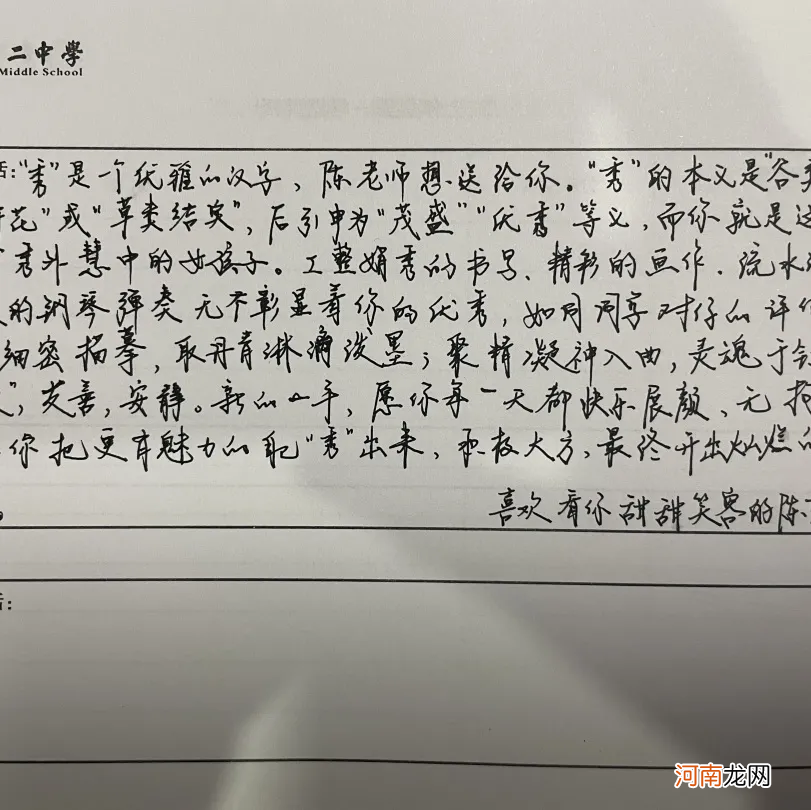 二中學
Middle School
话："秀"是一个优雅的汉字，陈老师想送给你。"秀"的本义是"谷类
开花"或"草类结实"，后引申为"茂盛""优秀"等义，而你就是这
秀外慧中的女孩子。工整娟秀的书写、精彩的画作、流水
的钢琴弹奏无不彰显着你的优秀，如同词亭对仔的评价
细密描摹，取丹青淋漓泼墨；聚精凝神入曲，灵魂于
，友善，安静。新的一年，愿你每一天都快乐展颜，无拘
你把更有魅力的自己"秀"出来，积极大方，最终开出灿烂的
喜欢看你甜甜笑容的陈
话：
河南龙网